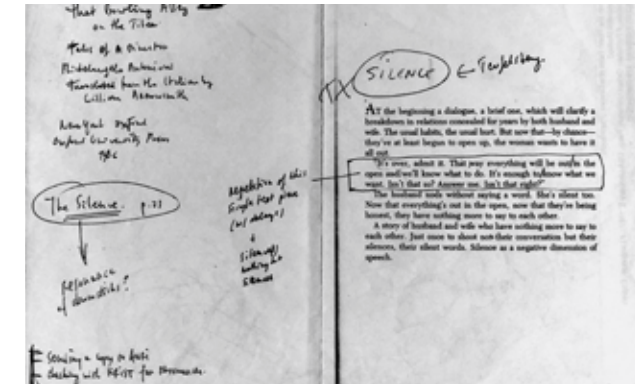 that Bowling Alley
on the Tiber
Tales of a Director
Michelangelo Antonioni
translated from the Italian by
William Arrowsmith
New York Oxford
Oxford University Press
1986
The Silence. p. 33
repetition of this
single text piece
(w/ delays)
silence
nothing but
silence
Sending a copy to
checking with
SILENCE
AT the beginning a dialogue, a brief one, which will clarify a
breakdown in relations concealed for years by both husband and
wife. The usual habits, the usual hurt. But now that—by chance—
they've at least begun to open up, the woman wants to have it
all out.
"It's over, admit it. That way everything will be out in the
open and we'll know what to do. It's enough to know what we
want. Isn't that so? Answer me. Isn't that right?"
The husband nods without saying a word. She's silent too.
Now that everything's out in the open, now that they're being
honest, they have nothing more to say to each other.
A story of husband and wife who have nothing more to say to
each other. Just once to shoot not their conversation but their
silences, their silent words. Silence as a negative dimension of
speech.